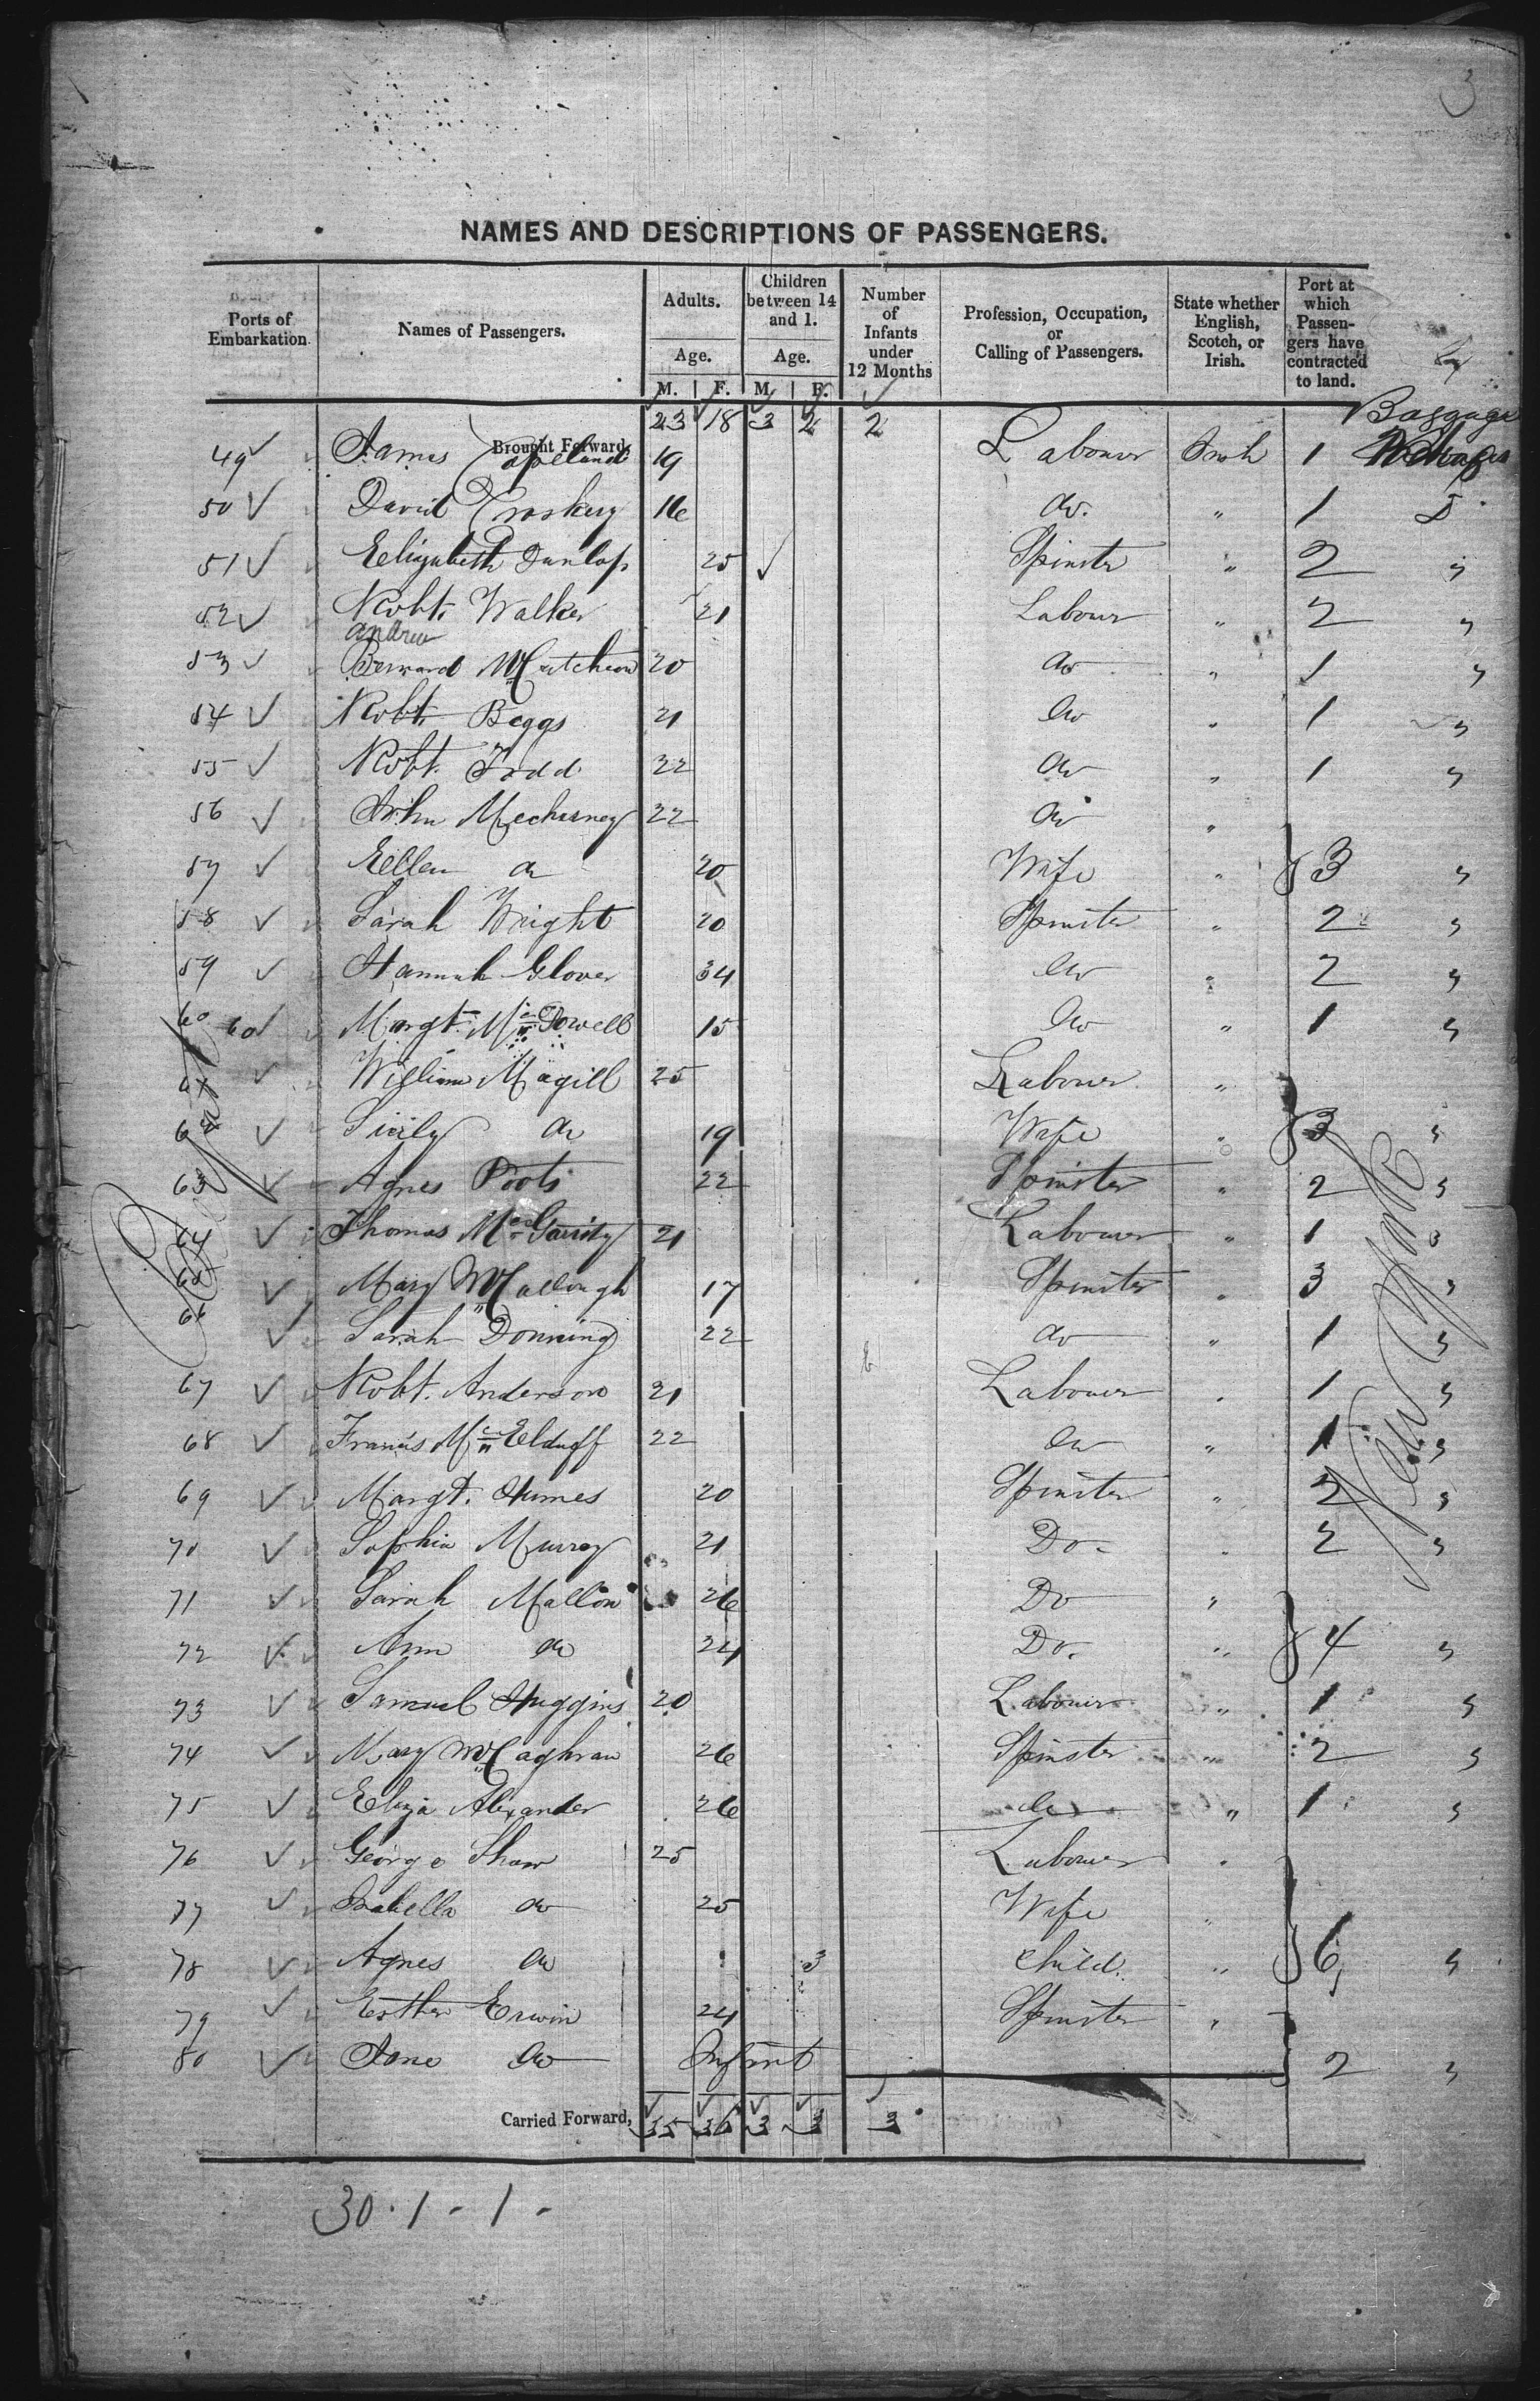 3
NAMES AND DESCRIPTIONS OF PASSENGERS.
Ports of Embarkation. Names of Passengers. Adults. Children between 14 and 1. Number of Infants under 12 Months Profession, Occupation, or Calling of Passengers. State whether English, Scotch, or Irish. Port at which Passengers have contracted to land.
Age. Age.
M. F. M. F.
Baggage
Brought Forward, 23 18 3 2 2
49 James Copeland 19 Labourer Irish 1 Packages
50 David Croskery 16 do. " 1 D
51 Elizabeth Dunlop 25 Spinster " 2 "
52 Robt. Walker 21 Labour " 2 "
Andrew
53 Bernard McCutcheon 20 do " 1 "
54 Robt. Beggs 21 do " 1 "
55 Robt. Todd 22 do " 1 "
56 John Mechesney 22 do "
57 Ellen do 20 Wife " 3 "
58 Sarah Wright 20 Spinster " 2 "
59 Hannah Glover 34 do " 2 "
60 60 Margt. McDowell 15 do " 1 "
61 William Magill 25 Labourer "
62 Sicily do 19 Wife " 3 "
63 Agnes Poots 22 Spinster " 2 "
64 Thomas McGarrity 21 Labourer " 1 "
65 Mary McCallough 17 Spinster " 3 "
66 Sarah Donning 22 do " 1 "
67 Robt. Anderson 21 Labourer " 1 "
68 Francis McElduff 22 do " 1 "
69 Margt. Humes 20 Spinster " 2 "
70 Sophia Murray 21 Do. " 2 "
71 Sarah Mallon 26 Do "
72 Ann do 24 Do. " 4 "
73 Samuel Huggins 20 Labourer " 1 "
74 Mary McCaghran 26 Spinster " 2 "
75 Eliza Alexander 26 do " 1 "
76 George Shaw 25 Labourer "
77 Isabella do 25 Wife "
78 Agnes do 3 Child. " 6 "
79 Esther Erwin 24 Spinster "
80 Jane do Infant 2 "
New York
Carried Forward, 35 36 3 3 3
30 . 1 - 1 -